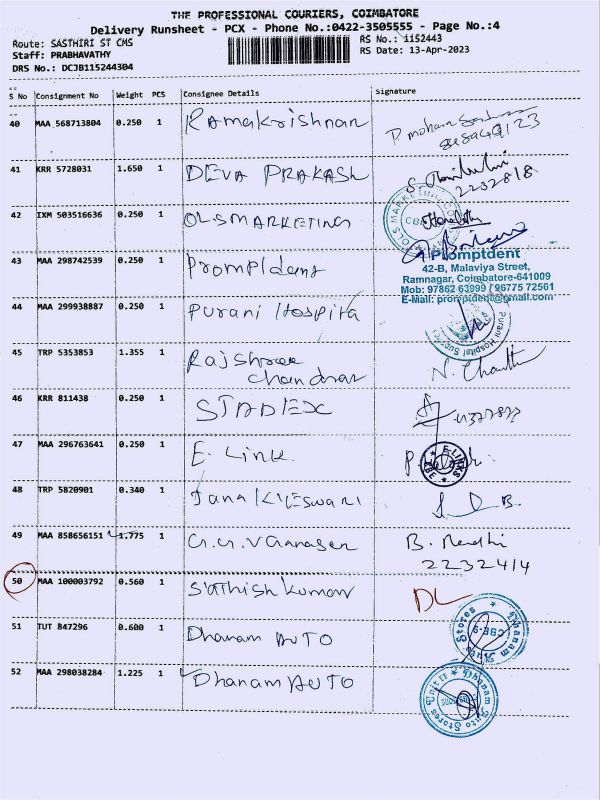 THE PROFESSIONAL COURIERS, COIMBATORE
Delivery Runsheet - PCX - Phone No.:0422-3505555 - Page No.:4
Route: SASTHIRI ST CMS RS No.: 1152443
Staff: PRABHAVATHY RS Date: 13-Apr-2023
DRS No.: DCJB115244304
S No Consignment No Weight PCS Consignee Details Signature
40 MAA 568713804 0.250 1 Ramakrishnan P. mohan
41 KRR 5728031 1.650 1 DEVA PRAKASH
2232818
42 IXM 503516636 0.250 1 OLSMARKETING
OLS MARKETING
43 MAA 298742539 0.250 1 Promptdent
Promptdent
42-B, Malaviya Street,
Ramnagar, Coimbatore-641009
Mob: 97862 63999 / 96775 72561
E-Mail: promptdent@gmail.com
44 MAA 299938887 0.250 1 Purani Hospita
Purani Hospital
45 TRP 5353853 1.355 1 Rajshree
chandran N.
46 KRR 811438 0.250 1 STADLEX
47 MAA 296763641 0.250 1 E. Link.
E-LINKS
CBE
48 TRP 5820901 0.340 1 Janakileswari B.
49 MAA 858656151 1.775 1 G.G.V Ganasen B.
2232414
50 MAA 100003792 0.560 1 Sathish kumar DL
51 TUT 847296 0.600 1 Dhanam AUTO
Dhanam Stores CBE-9
52 MAA 298038284 1.225 1 Dhanam AUTO
Dhanam Auto Stores Unit II